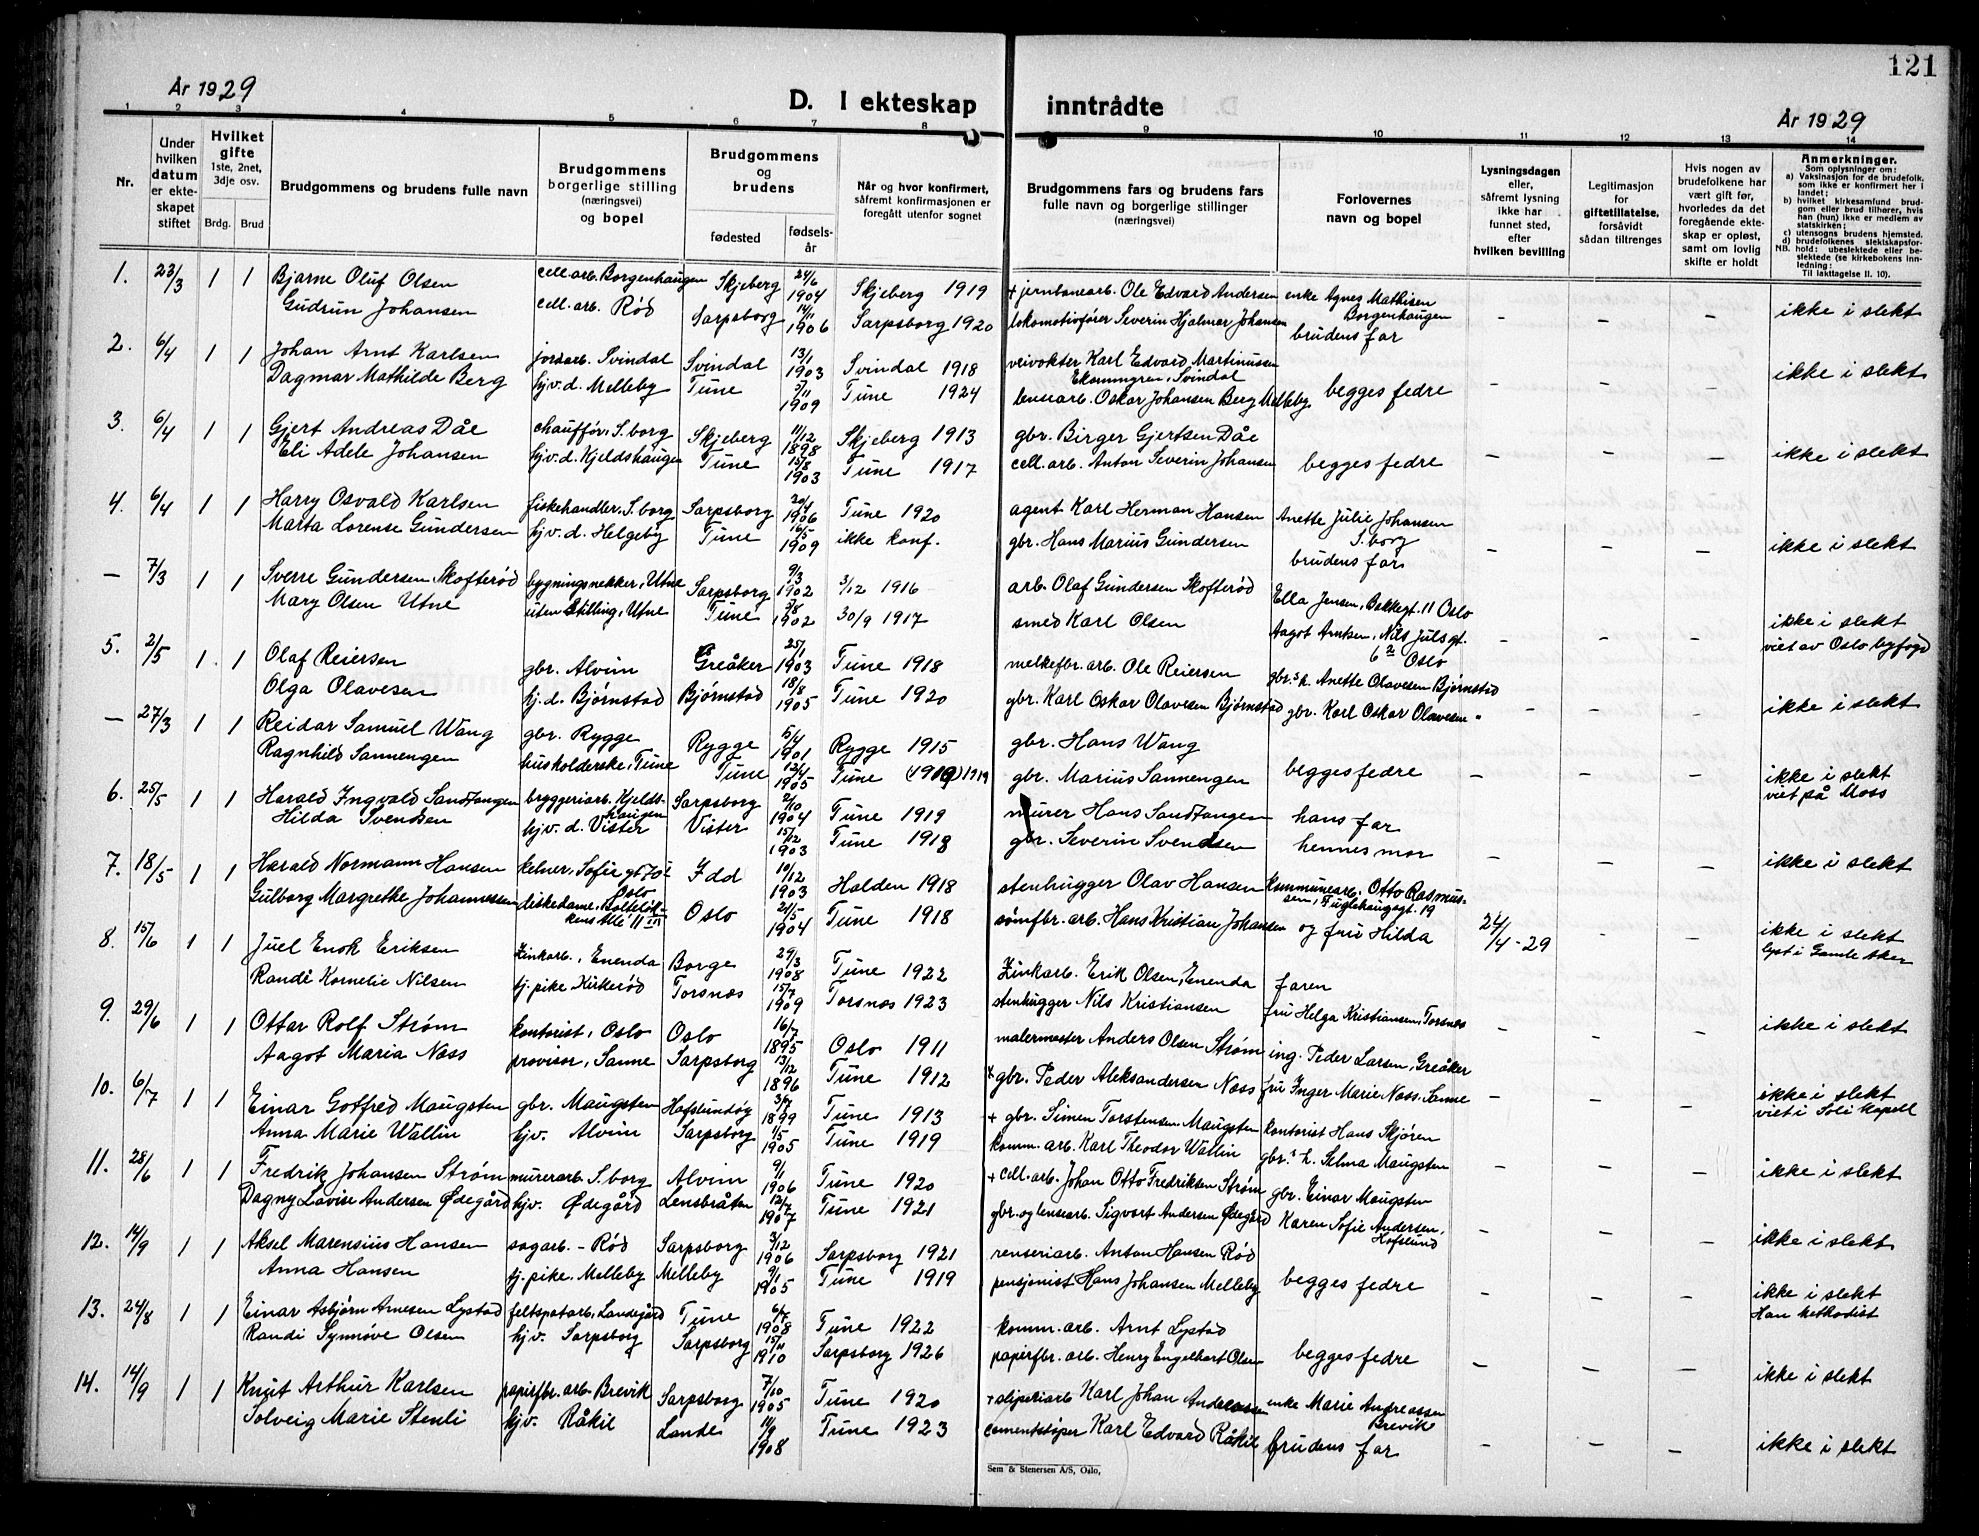 121
År 1929
D. I ekteskap inntrådte
År 1929
1 2 3 4 5 6 7 8 9 10 11 12 13 14
Nr.
Under hvilken datum er ekteskapet stiftet
Hvilket gifte 1ste, 2net, 3dje osv.
Brdg. Brud
Brudgommens og brudens fulle navn
Brudgommens borgerlige stilling (næringsvei) og bopel
Brudgommens og brudens
fødested fødselsår
Når og hvor konfirmert, såfremt konfirmasjonen er foregått utenfor sognet
Brudgommens fars og brudens fars fulle navn og borgerlige stillinger (næringsvei)
Forlovernes navn og bopel
Lysningsdagen eller, såfremt lysning ikke har funnet sted, efter hvilken bevilling
Legitimasjon for giftetillatelse, forsåvidt sådan tiltrenges
Hvis nogen av brudefolkene har vært gift før, hvorledes da det foregående ekteskap er opløst, samt om lovlig skifte er holdt
Anmerkninger.
Som oplysninger om:
a) Vaksinasjon for de brudefolk, som ikke er konfirmert her i landet;
b) hvilket kirkesamfund brudgom eller brud tilhører, hvis han (hun) ikke er medlem av statskirken;
c) utensogns brudens hjemsted.
d) brudefolkenes slektskapsforhold: ubeslektede eller beslektede (se kirkebokens innledning;
NB.
Til iakttagelse II. 10).
1. 23/3 1 1 Bjarne Oluf Olsen cell. arb. Borgenhaugen Skjeberg 24/6 1904 Skjeberg 1919 + jernbanearb. Ole Edvard Andersen enke Agnes Mathisen Borgenhaugen
Gudrun Johansen cell. arb. Rød Sarpsborg 14/11 1906 Sarpsborg 1920 lokomotivfører Severin Hjalmar Johansen brudens far – – – ikke i slekt
2. 6/4 1 1 Johan Arnt Karlsen jordarb. Svindal Svindal 13/1 1903 Svindal 1918 veivokter Karl Edvard Martinussen Ekornngren, Svindal
Dagmar Mathilde Berg hjv. d. Melleby Tune 5/11 1909 Tune 1924 lensearb. Oskar Johansen Berg Melleby begges fedre – – – ikke i slekt
3. 6/4 1 1 Gjert Andreas Dåe chauffør, S.borg Skjeberg 11/12 1898 Skjeberg 1913 gbr. Birger Gjertsen Dåe
Eli Adele Johansen hjv. d. Kjeldshaugen Tune 15/8 1903 Tune 1917 cell. arb. Anton Severin Johansen begges fedre – – – ikke i slekt
4. 6/4 1 1 Harry Osvald Karlsen fiskehandler, S.borg Sarpsborg 20/4 1906 Tune 1920 agent Karl Herman Hansen Anette Julie Johansen S.borg
Marta Lorense Gundersen hjv. d. Helgeby Tune 16/5 1909 ikke konf. gbr. Hans Marius Gundersen brudens far – – – ikke i slekt
– 7/3 1 1 Sverre Gundersen Skofterød bygningssnekker, Utne Sarpsborg 9/3 1902 3/12 1916 arb. Olaf Gundersen Skofterød Ella Jensen, Bakkegt. 11 Oslo
Mary Olsen Utne uten stilling, Utne Tune 1902 30/9 1917 smed Karl Olsen Aagot Arntsen, Nils Juls gt. Oslo – – – ikke i slekt viet av Oslo byfogd
5. 2/5 1 1 Olaf Reiersen gbr. Alvim Greåker 25/1 1903 Tune 1918 melkefbr. arb. Ole Reiersen gbr.s h. Anette Olavesen Bjørnstad
Olga Olavesen hj. d. Bjørnstad Bjørnstad 18/8 1905 Tune 1920 gbr. Karl Oskar Olavesen Bjørnstad gbr. Karl Oskar Olavesen " – – – ikke i slekt
– 27/3 1 1 Reidar Samuel Wang gbr. Rygge Rygge 1901 Rygge 1915 gbr. Hans Wang
Ragnhild Sannengen husholderske, Tune Tune 12/4 1905 Tune (1919) 1919 gbr. Marius Sannengen begges fedre – – – ikke i slekt viet på Moss
6. 25/5 1 1 Harald Ingvald Sandtangen bryggeriarb. Kjeldshaugen Sarpsborg 2/10 1904 Tune 1919 murer Hans Sandtangen hans far
Hilda Svendsen hjv. d. Vister Vister 15/12 1903 Tune 1918 gbr. Severin Svendsen hennes mor – – – ikke i slekt
7. 18/5 1 1 Harald Normann Hansen kelner, Sofie gt. 70 Oslo Idd 10/12 1903 Halden 1918 stenhugger Olav Hansen kommunearb. Otto Rasmussen, Fuglehauggt. 19
Gulborg Margrethe Johannessen diskedame, Balleløkkens Alle 11 III Oslo 21/5 1904 Tune 1918 sømfbr. arb. Hans Kristian Johansen og fru Hilda 24/4-29 – – ikke i slekt lyst i Gamle Aker
8. 15/6 1 1 Juel Enok Eriksen Zinkarb., Enenda Borge 29/3 1908 Tune 1922 Zinkarb. Erik Olsen, Enenda faren
Randi Kornelie Nilsen tj. pike Kirkerød Torsnæs 15/7 1909 Torsnæs 1923 stenhugger Nils Kristiansen fru Helga Kristiansen, Torsnæs – – – ikke i slekt
9. 29/6 1 1 Ottar Rolf Strøm kontorist, Oslo Oslo 16/7 1895 Oslo 1911 malermester Anders Olsen Strøm ing. Peder Larsen, Greåker
Aagot Maria Næss provisor, Sanne Sarpsborg 13/12 1896 Tune 1912 + gbr. Peder Aleksandersen Næss fru Inger Marie Næss, Sanne – – – ikke i slekt viet i Soli kapell
10. 6/7 1 1 Einar Gotfred Maugsten gbr. Maugsten Hafslundøy 3/7 1899 Tune 1913 + gbr. Simen Torstensen, Maugsten kontorist Hans Skjøren
Anna Marie Wallin hjv. Alvim Sarpsborg 1/5 1905 Tune 1919 komm. arb. Karl Theodor Wallin gbr.s h. Selma Maugsten – – – ikke i slekt
11. 28/6 1 1 Fredrik Johansen Strøm murerarb. S.borg Alvim 9/1 1906 Tune 1920 + cell. arb. Johan Otto Fredriksen Strøm gbr. Einar Maugsten
Dagny Lovise Andersen Ødegård hjv. Ødegård Lensbråten 12/7 1907 Tune 1921 gbr. og lensearb. Sigvart Andersen Ødegård Karen Sofie Andersen, Hafslund – – – ikke i slekt
12. 14/9 1 1 Aksel Marensius Hansen sagarb. – Rød Sarpsborg 3/12 1906 Sarpsborg 1921 renseriarb. Anton Hansen Rød
Anna Hansen tj. pike. Melleby Melleby 9/1 1905 Tune 1919 pensjonist Hans Johansen Melleby begges fedre – – – ikke i slekt Han methodist
13. 24/8 1 1 Einar Asbjørn Arnesen Lystad feltspatarb, Landegård Tune 6/7 1908 Tune 1922 komm. arb. Arnt Lystad
Randi Synnøve Olsen hjv. Sarpsborg Sarpsborg 15/11 1910 Sarpsborg 1926 papirfbr. arb. Henry Engelhart Olsen begges fedre – – – ikke i slekt
14. 14/9 1 1 Knut Arthur Karlsen papirfbr. arb. Brevik Sarpsborg 7/10 1905 Tune 1920 + sliperiarb Karl Johan Andreassen enke Marie Andreassen Brevik
Solveig Marie Stenli hjv. Råkil Lande 11/9 1908 Tune 1923 cementstøper Karl Edvard Råkil brudens far – – – ikke i slekt
Sem & Stenersen A/S, Oslo.